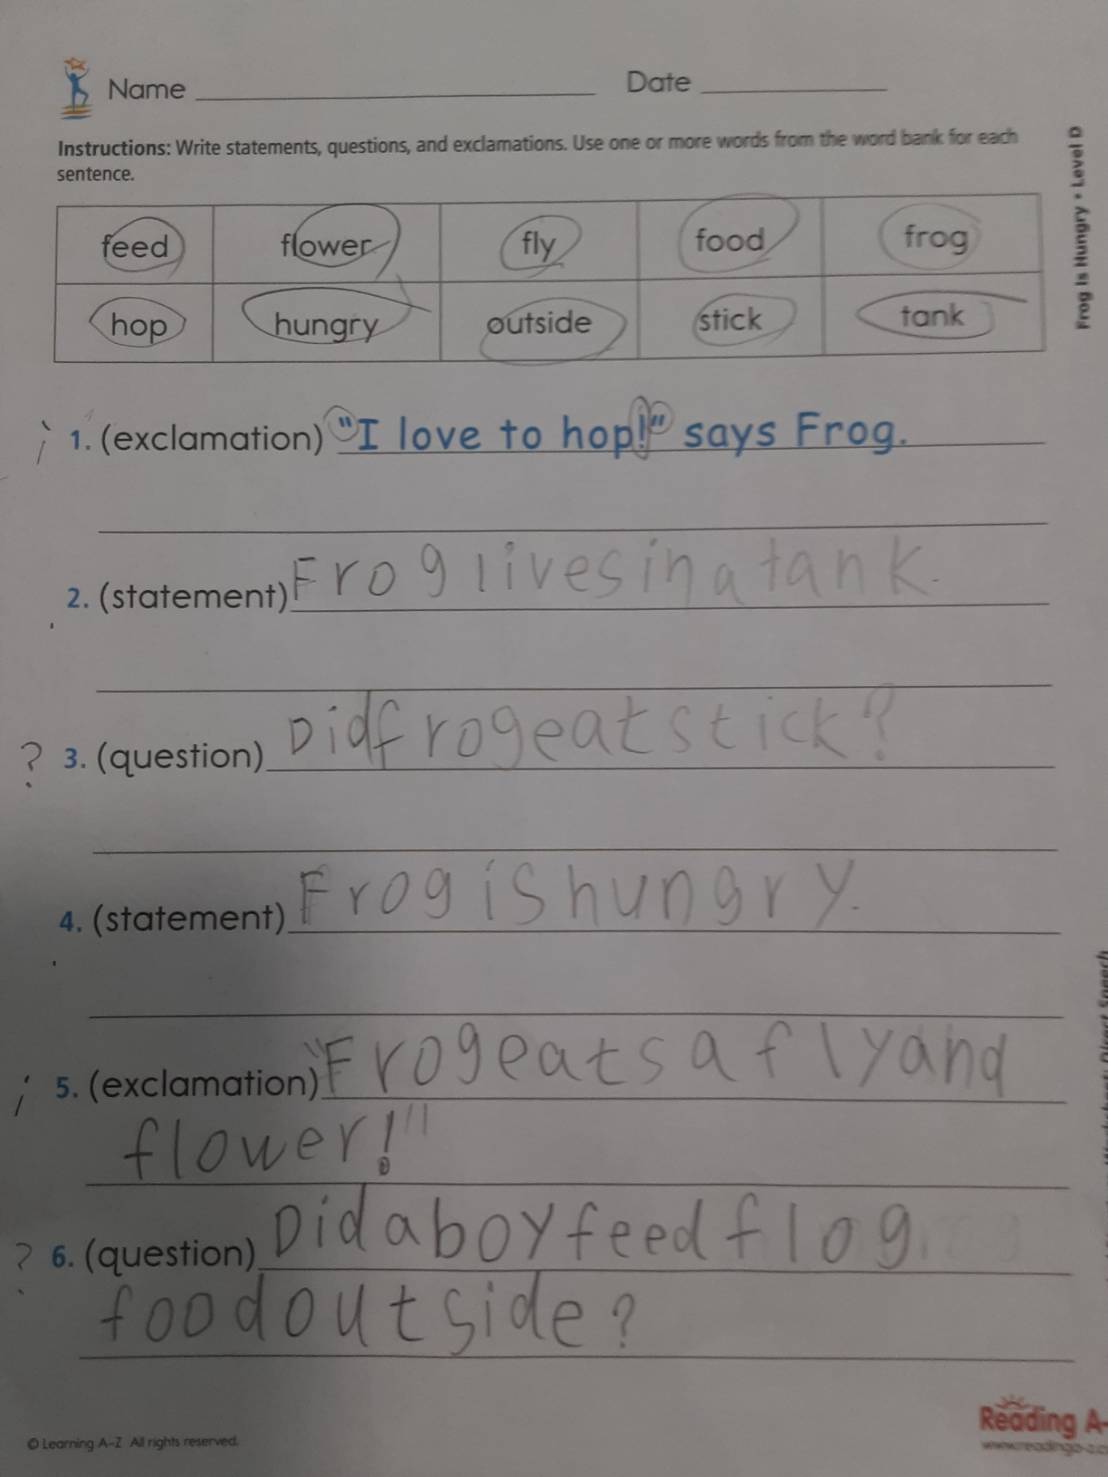 Name Date
Instructions: Write statements, questions, and exclamations. Use one or more words from the word bank for each
sentence.
feed flower fly food frog
hop hungry outside stick tank
1. (exclamation) "I love to hop!" says Frog.
2. (statement) Frog lives in a tank.
? 3. (question) Did frog eat stick?
4. (statement) Frog is hungry.
5. (exclamation) "Frog eats a fly and
flower!"
? 6. (question) Did a boy feed flog
food outside?
Frog Is Hungry • Level D
Reading A-
© Learning A–Z All rights reserved.